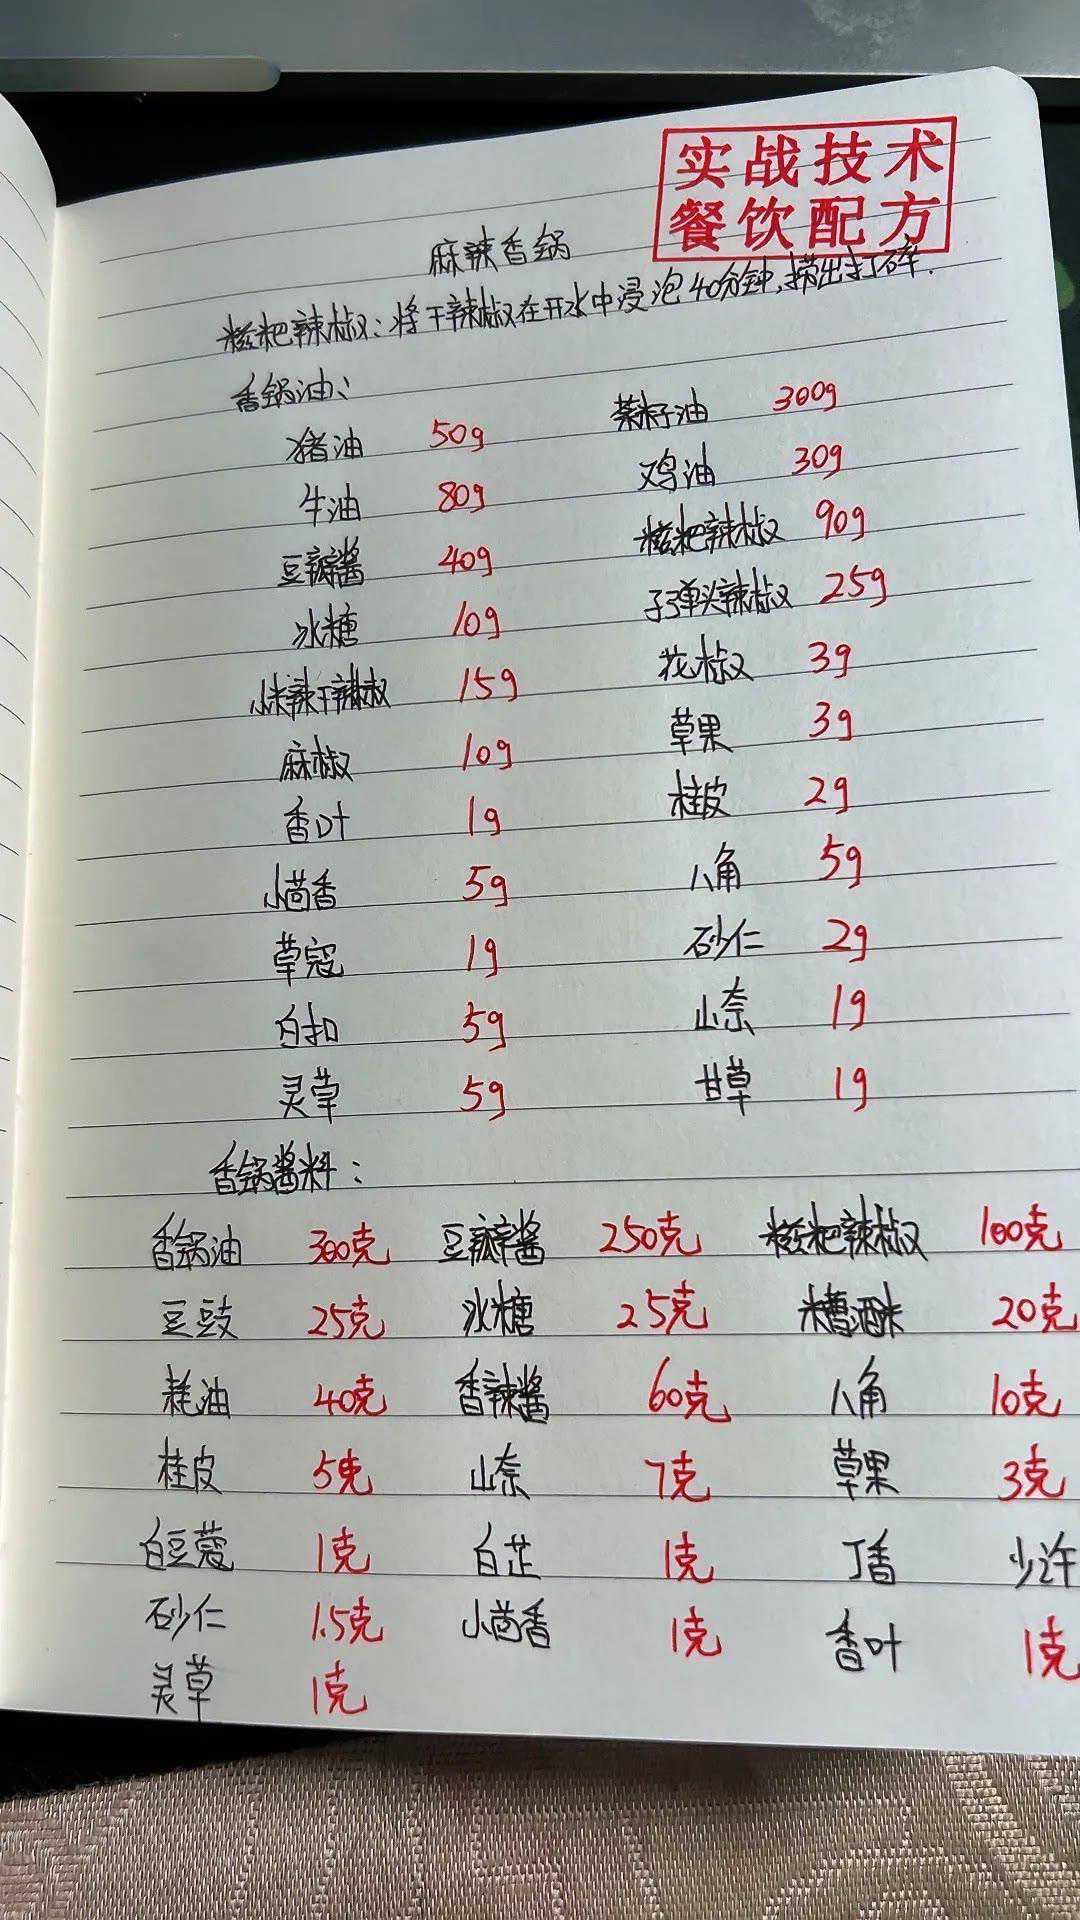 实战技术
餐饮配方
麻辣香锅
糍粑辣椒:将干辣椒在开水中浸泡40分钟,捞出打碎.
香锅油:
猪油 50g 菜籽油 300g
牛油 80g 鸡油 30g
豆瓣酱 40g 糍粑辣椒 90g
冰糖 10g 子弹头辣椒 25g
小米辣干辣椒 15g 花椒 3g
麻椒 10g 草果 3g
香叶 1g 桂皮 2g
小茴香 5g 八角 5g
草寇 1g 砂仁 2g
白扣 5g 山奈 1g
灵草 5g 甘草 1g
香锅酱料:
香锅油 300克 豆瓣酱 250克 糍粑辣椒 100克
豆豉 25克 冰糖 25克 糟酒米 20克
耗油 40克 香辣酱 60克 八角 10克
桂皮 5克 山奈 7克 草果 3克
白豆蔻 1克 白芷 1克 丁香 少许
砂仁 1.5克 小茴香 1克 香叶 1克
灵草 1克